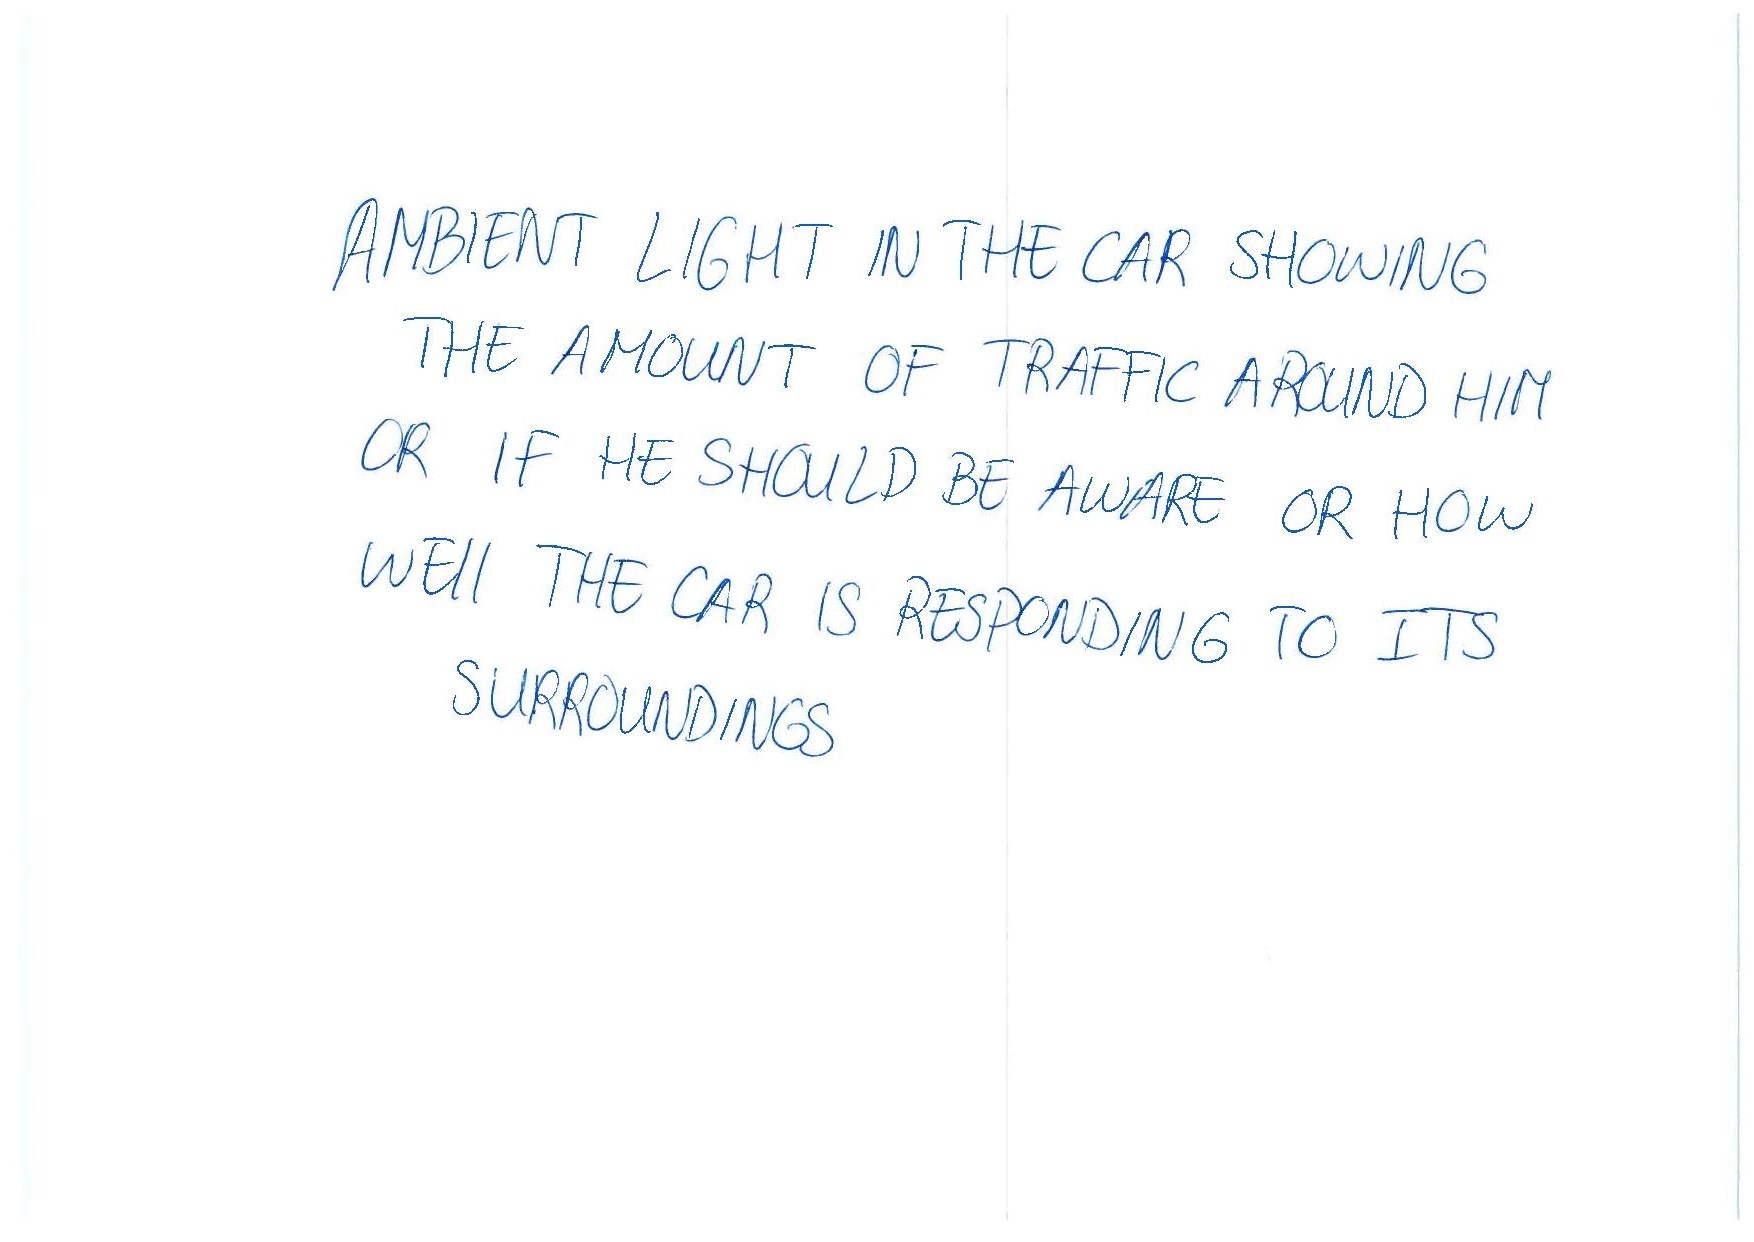 AMBIENT LIGHT IN THE CAR SHOWING
THE AMOUNT OF TRAFFIC AROUND HIM
OR IF HE SHOULD BE AWARE OR HOW
WEll THE CAR IS RESPONDING TO ITS
SURROUNDINGS